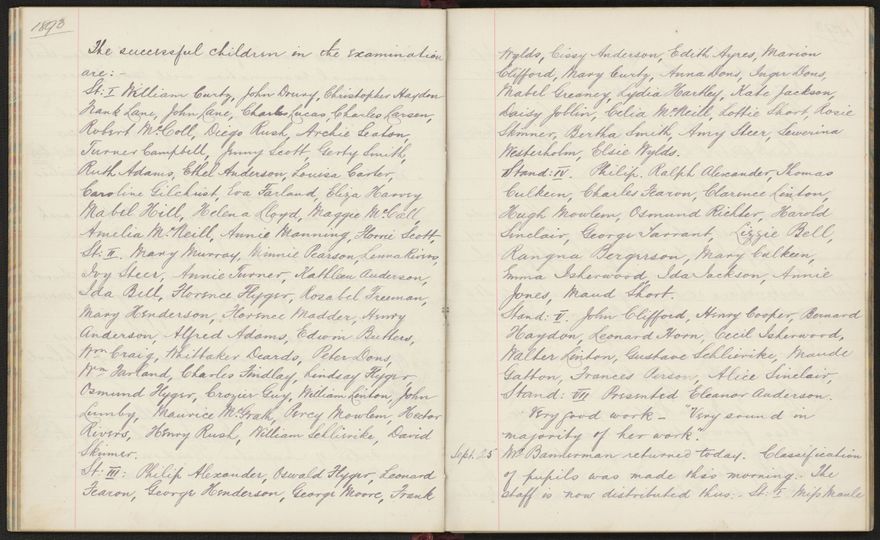 1893
The successful children in the Examination
are:-
St: I William Curty, John Downy, Christopher Haydon
Frank Lane, John Lane, Charles Lucas, Charles Larsen,
Robert McColl, Diego Rush, Archie Seaton,
Turner Campbell, Jenny Scott, Gerty Smith,
Ruth Adams, Ethel Anderson, Louisa Carter,
Caroline Gilchrist, Eva Farland, Eliza Harvey
Mabel Hill, Helena Lloyd, Maggie McCall,
Amelia McNeill, Annie Manning, Florrie Scott,
St: II. Mary Murray, Minnie Pearson, Rivers,
Ivy Steer, Annie Turner, Kathleen Anderson,
Ida Bell, Florence Flyger, Rosabel Freeman,
Mary Henderson, Florence Madder, Henry
Anderson, Alfred Adams, Edwin Butters,
Wm Craig, Whittaker Deards, Peter Dons,
Wm Farland, Charles Findlay, Lindsay Flyger
Osmund Flyger, Crozier Guy, William Linton, John
Lumby, Maurice McGrath, Percy Mowlem, Hector
Rivers, Henry Rush, William Schlierike, David
Skinner.
St: III: Philip Alexander, Oswald Flyger, Leonard
Fearon, George Henderson, George Moore, Frank
Wylds, Cissy Anderson, Edith Ayres, Marion
Clifford, Mary Curty, Anna Dons, Inger Dons,
Mabel Greaney, Lydia Hartley, Kate Jackson,
Daisy Joblin, Celia McNeill, Lottie Short, Rosie
Skinner, Bertha Smith, Amy Steer, Severina
Westerholm, Elsie Wylds.
Stand: IV. Philip Ralph Alexander, Thomas
Culkeen, Charles Fearon, Clarence Linton,
Hugh Mowlem, Osmund Richter, Harold
Sinclair, George Tarrant, Lizzie Bell,
Rangna Bergersson, Mary Culkeen,
Emma Isherwood, Ida Jackson, Annie
Jones, Maud Short.
Stand: V John Clifford, Henry Cooper, Bernard
Haydon, Leonard Horn, Cecil Isherwood,
Walter Linton, Gustave Schlierike, Maude
Gatton, Frances Person, Alice Sinclair,
Stand: VII Presented Eleanor Anderson.
Very good work - "Very sound in
majority of her work."
Sept. 25 Mr Bannerman returned today. Classification
of pupils was made this morning. The
staff is now distributed thus:- St: I Miss Maule